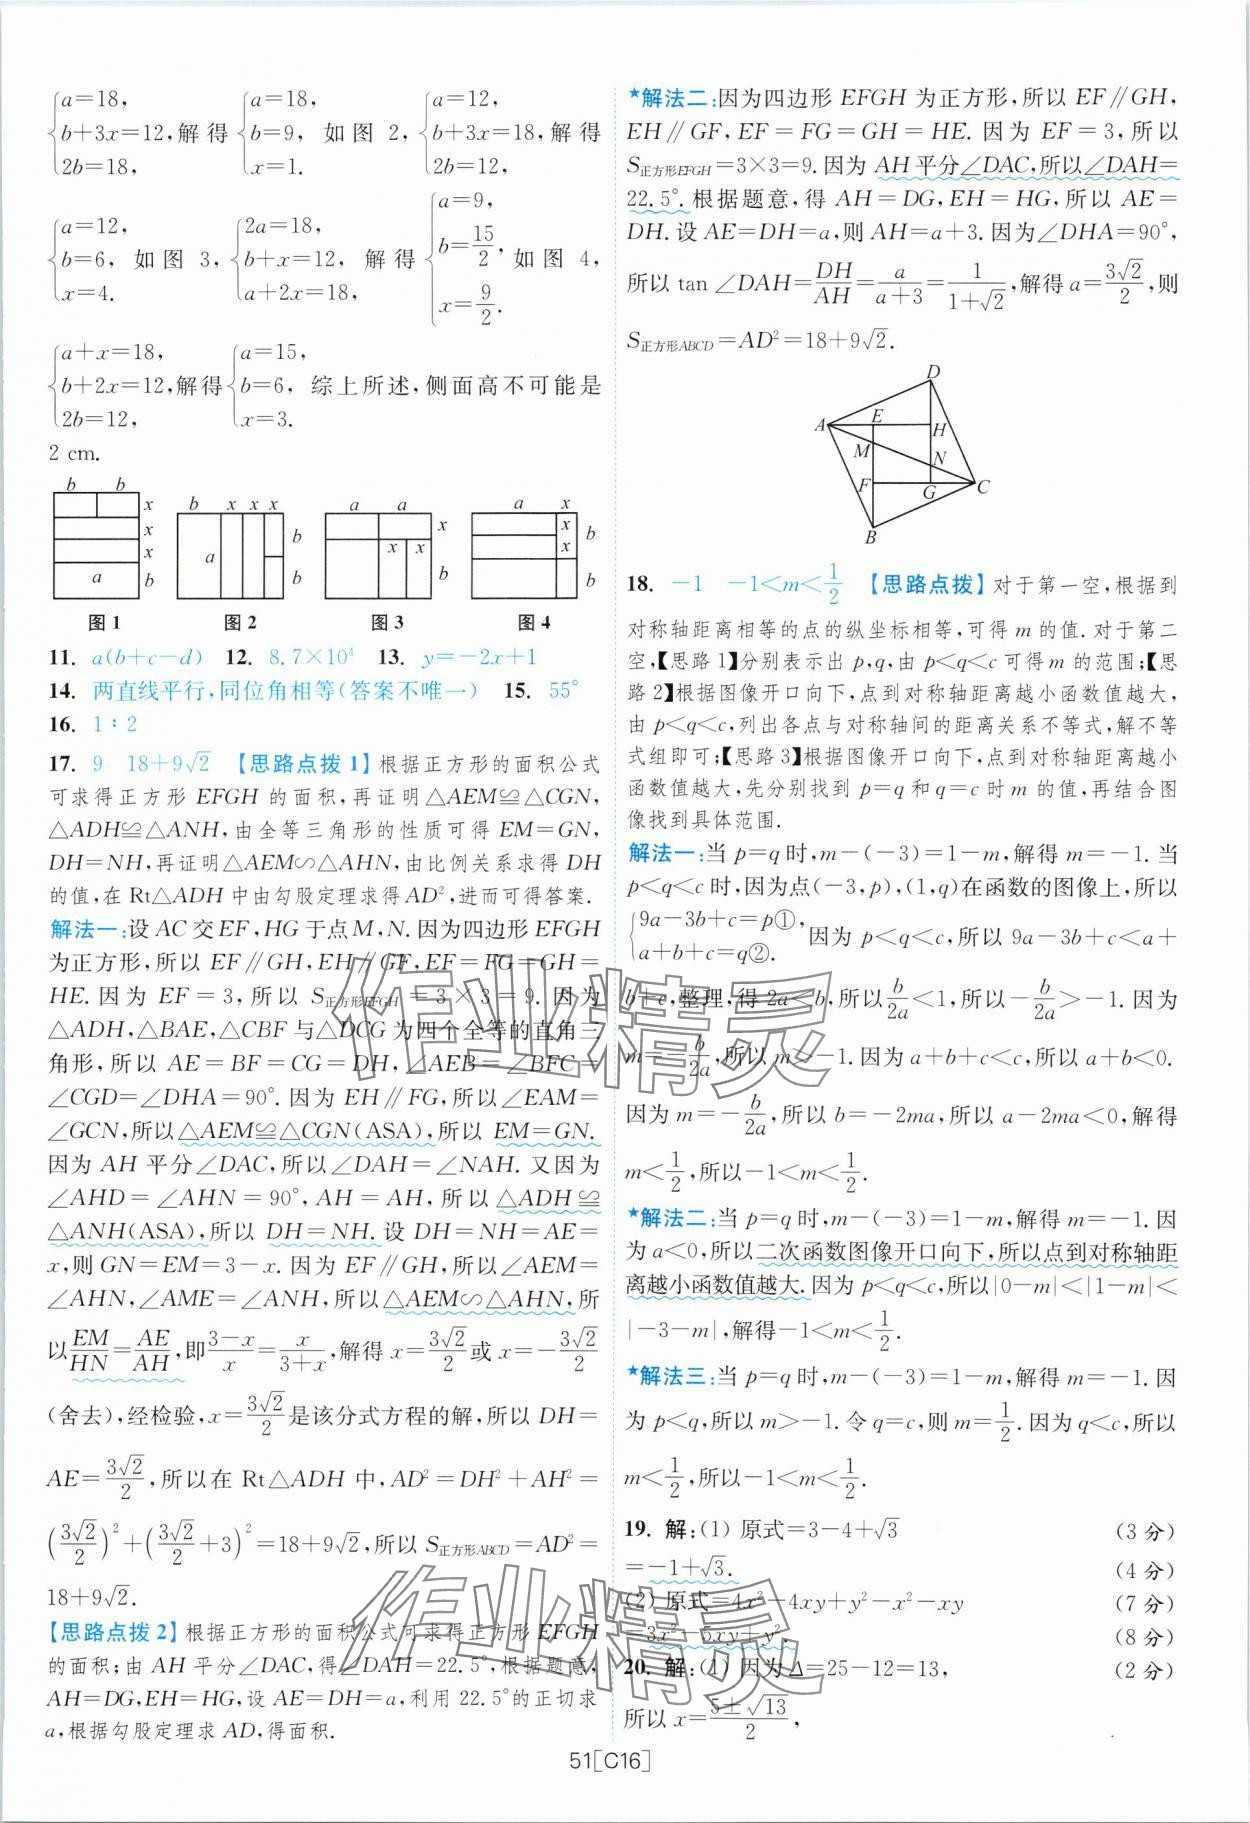 {a=18, b+3x=12, 2b=18, 解得 {a=18, b=9, x=1. 如图 2, {a=12, b+3x=18, 2b=12, 解得
{a=12, b=6, x=4. 如图 3, {2a=18, b+x=12, a+2x=18, 解得 {a=9, b=15/2, x=9/2. 如图 4,
{a+x=18, b+2x=12, 2b=12, 解得 {a=15, b=6, x=3. 综上所述,侧面高不可能是
2 cm.
b b x x x a b
图 1
b x x x a b b
图 2
a a x x x b
图 3
a x x x b b
图 4
11. a(b+c-d) 12. 8.7×10⁴ 13. y=-2x+1
14. 两直线平行,同位角相等(答案不唯一) 15. 55°
16. 1∶2
17. 9 18+9√2 【思路点拨 1】根据正方形的面积公式
可求得正方形 EFGH 的面积,再证明△AEM≌△CGN,
△ADH≌△ANH,由全等三角形的性质可得 EM=GN,
DH=NH,再证明△AEM∽△AHN,由比例关系求得 DH
的值,在 Rt△ADH 中由勾股定理求得 AD²,进而可得答案.
解法一:设 AC 交 EF,HG 于点 M,N.因为四边形 EFGH
为正方形,所以 EF∥GH,EH∥GF,EF=FG=GH=
HE.因为 EF=3,所以 S正方形EFGH=3×3=9.因为
△ADH,△BAE,△CBF 与△DCG 为四个全等的直角三
角形,所以 AE=BF=CG=DH,∠AEB=∠BFC=
∠CGD=∠DHA=90°.因为 EH∥FG,所以∠EAM=
∠GCN,所以△AEM≌△CGN(ASA),所以 EM=GN.
因为 AH 平分∠DAC,所以∠DAH=∠NAH.又因为
∠AHD=∠AHN=90°,AH=AH,所以△ADH≌
△ANH(ASA),所以 DH=NH.设 DH=NH=AE=
x,则 GN=EM=3-x.因为 EF∥GH,所以∠AEM=
∠AHN,∠AME=∠ANH,所以△AEM∽△AHN,所
以EM/HN=AE/AH,即(3-x)/x=x/(3+x),解得 x=3√2/2或 x=-3√2/2
(舍去),经检验,x=3√2/2是该分式方程的解,所以 DH=
AE=3√2/2,所以在 Rt△ADH 中,AD²=DH²+AH²=
(3√2/2)²+(3√2/2+3)²=18+9√2,所以 S正方形ABCD=AD²=
18+9√2.
【思路点拨 2】根据正方形的面积公式可求得正方形 EFGH
的面积;由 AH 平分∠DAC,得∠DAH=22.5°,根据题意,
AH=DG,EH=HG,设 AE=DH=a,利用 22.5°的正切求
a,根据勾股定理求 AD,得面积.
*解法二:因为四边形 EFGH 为正方形,所以 EF∥GH,
EH∥GF,EF=FG=GH=HE.因为 EF=3,所以
S正方形EFGH=3×3=9.因为 AH 平分∠DAC,所以∠DAH=
22.5°.根据题意,得 AH=DG,EH=HG,所以 AE=
DH.设 AE=DH=a,则 AH=a+3.因为∠DHA=90°,
所以 tan ∠DAH=DH/AH=a/(a+3)=1/(1+√2),解得 a=3√2/2,则
S正方形ABCD=AD²=18+9√2.
D
A E H
M N
F G C
B
18. -1 -1<m<1/2 【思路点拨】对于第一空,根据到
对称轴距离相等的点的纵坐标相等,可得 m 的值.对于第二
空,【思路 1】分别表示出 p,q,由 p<q<c 可得 m 的范围;【思
路 2】根据图像开口向下,点到对称轴距离越小函数值越大,
由 p<q<c,列出各点与对称轴间的距离关系不等式,解不等
式组即可;【思路 3】根据图像开口向下,点到对称轴距离越小
函数值越大,先分别找到 p=q 和 q=c 时 m 的值,再结合图
像找到具体范围.
解法一:当 p=q 时,m-(-3)=1-m,解得 m=-1.当
p<q<c 时,因为点(-3,p),(1,q)在函数的图像上,所以
{9a-3b+c=p①, a+b+c=q②. 因为 p<q<c,所以 9a-3b+c<a+
b+c,整理,得 2a<b,所以b/2a<1,所以-b/2a>-1.因为
m=-b/2a,所以 m>-1.因为 a+b+c<c,所以 a+b<0.
因为 m=-b/2a,所以 b=-2ma,所以 a-2ma<0,解得
m<1/2,所以-1<m<1/2.
*解法二:当 p=q 时,m-(-3)=1-m,解得 m=-1.因
为 a<0,所以二次函数图像开口向下,所以点到对称轴距
离越小函数值越大.因为 p<q<c,所以|0-m|<|1-m|<
|-3-m|,解得-1<m<1/2.
*解法三:当 p=q 时,m-(-3)=1-m,解得 m=-1.因
为 p<q,所以 m>-1.令 q=c,则 m=1/2.因为 q<c,所以
m<1/2,所以-1<m<1/2.
19. 解:(1) 原式=3-4+√3 (3 分)
=-1+√3. (4 分)
(2) 原式=4x²-4xy+y²-x²-xy (7 分)
=3x²-5xy+y². (8 分)
20. 解:(1) 因为 Δ=25-12=13, (2 分)
所以 x=(5±√13)/2,
51[C16]
作业精灵
作业精灵